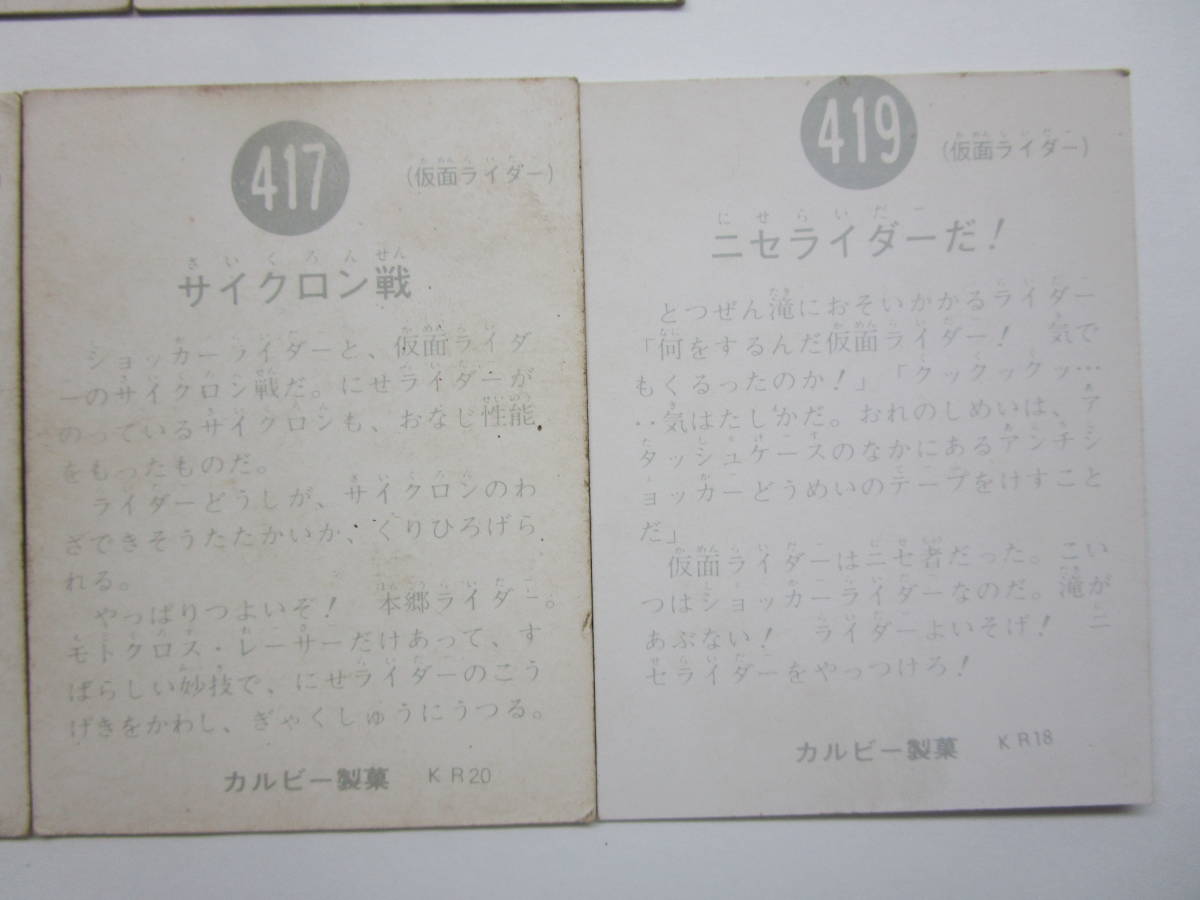 417
(仮面ライダー)
かめんらいだー
さいくろんせん
サイクロン戦
ショッカーライダーと、仮面ライダ
ーのサイクロン戦だ。にせライダーが
のっているサイクロンも、おなじ性能
をもったものだ。
ライダーどうしが、サイクロンのわ
ざできそうたたかいか、くりひろげら
れる。
やっぱりつよいぞ! 本郷ライダー。
モトクロス・レーサーだけあって、す
ばらしい妙技で、にせライダーのこう
げきをかわし、ぎゃくしゅうにうつる。
カルビー製菓 KR20
419
(仮面ライダー)
かめんらいだー
にせらいだー
ニセライダーだ!
とつぜん滝におそいかかるライダー
「何をするんだ仮面ライダー! 気で
もくるったのか!」「クックックッ…
‥気はたしかだ。おれのしめいは、ア
タッシュケースのなかにあるアンチシ
ョッカーどうめいのテープをけすこと
だ」
仮面ライダーはニセ者だった。こい
つはショッカーライダーなのだ。滝が
あぶない! ライダーよいそげ! ニ
セライダーをやっつけろ!
カルビー製菓 KR18